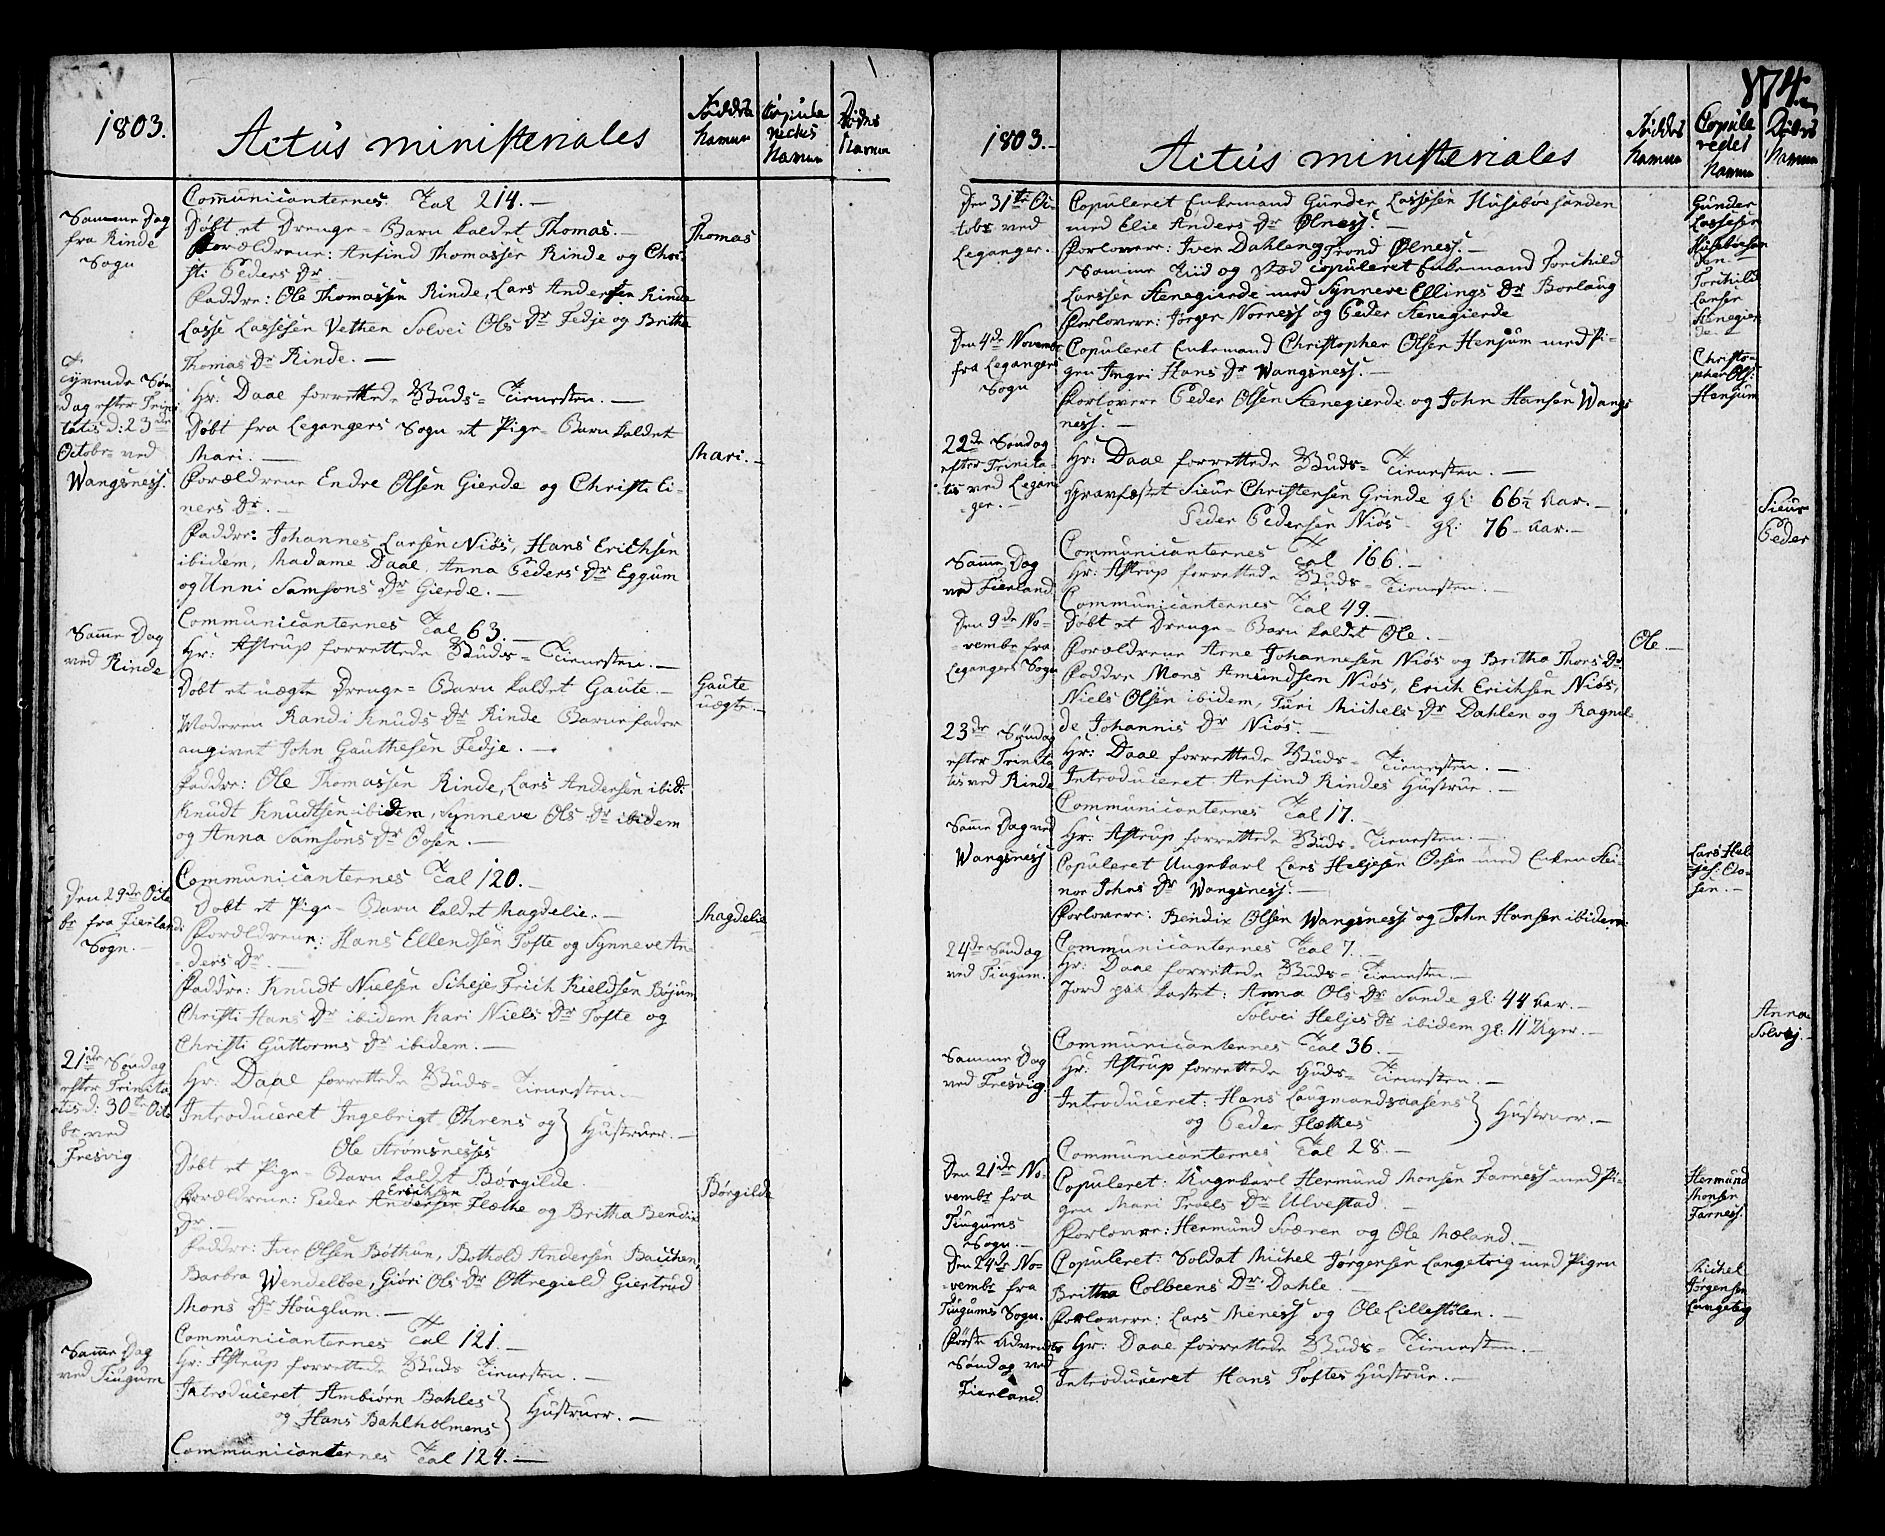 1803.
Actus ministeriales
Føddes Namne
Copuleredes Namne
Dødes Namne
Communicanternes Tal 214. —
Samme Dag
fra Rinde
Sogn
Døbt et Drenge-Barn kaldet Thomas. —
Thomas
Forældrene: Anfind Thomassen Rinde og Chri-
sti Peders Dr
Faddre: Ole Thomassen Rinde, Lars Andersen Rinde
Lasse Lassesen Vethen Solvei Ols Dr Fedje og Britha
Thomas Dr Rinde. —
Tyvende Søn-
dag efter Trini-
tatis d: 23de
Octobr ved
Wangsness.
Hr: Daae forrettede Guds-Tienesten. —
Døbt fra Legangers Sogn et Pige-Barn kaldet
Mari. —
Mari. —
Forældrene Endre Olsen Gierde og Christi Ei-
ners Dr. —
Faddre: Johannes Larsen Niøs, Hans Erichsen
ibidem, Madame Daae, Anna Peders Dr Eggum
og Unni Samsons Dr Gierde. —
Communicanternes Tal 63. —
Samme Dag
ved Rinde
Hr: Astrup forrettede Guds-Tienesten. —
Døbt et uægte Drenge-Barn kaldet Gaute. —
Gaute
uægte. —
Moderen Randi Knuds Dr Rinde Barnefader
angivet John Gauthesen Fedje. —
Faddre: Ole Thomassen Rinde, Lars Andersen ibid:
Knudt Knudtsen ibidem, Synneve Ols Dr ibidem
og Anna Samsons Dr Oosen. —
Communicanternes Tal 120. —
Den 29de Octo-
br fra Fierlands
Sogn. —
Døbt et Pige-Barn kaldet Magdelie. —
Magdelie
Forældrene: Hans Ellendsen Tofte og Synneve An-
ders Dr. —
Faddre: Knudt Nielsen Scheje Erich Kieldsen Bøjum
Christi Hans Dr ibidem Kari Niels Dr Tofte og
Christi Guttorms Dr ibidem. —
21de Søndag
efter Trinita-
tis d: 30te Octo-
br ved
Fresvig
Hr: Daae forrettede Guds-Tienesten. —
Introduceret Ingebrigt Øhrens og } Hustruer. —
Ole Strømsnesses
Døbt et Pige-Barn kaldet Børgilde.
Børgilde
Forældrene: Peder Erichsen Andersen Flæthe og Britha Bendix
Dr. —
Faddre: Iver Olsen Bøthun, Bothold Andersen Bauchen,
Barbra Wendelboe, Giøri Ols Dr Ottregield Giertrud
Mons Dr Houglum. —
Communicanternes Tal 121. —
Samme Dag
ved Tiugum
Hr: Astrup forrettede Guds Tienesten. —
Introduceret Ambiørn Bahles } Hustruer. —
og Hans Bahlholmens
Communicanternes Tal 124. —
174.
1803. —
Actus ministeriales
Føddes Namne
Copuleredes Namne
Dødes Namne
Den 31te Oc-
tobr ved
Leganger.
Copuleret Enkemand Gunder Lassesen Husebøesanden
med Elie Anders Dr Ølness. —
Gunder
Lassesen
Husebøesan-
den —
Forlovere: Iver Dahlen og Trond Ølness. —
Samme Tiid og Stæd copuleret Enkemand Torchild
Larssen Henegierde med Synneve Ellings Dr Borlaug
Torchild
Larsen
Henegier-
de —
Forlovere: Jørgen Norness og Peder Henegierde
Den 4de Novembr
fra Legangers
Sogn
Copuleret Enkemand Christopher Olsen Henjum med Pi-
gen Ingri Hans Dr Wangsness. —
Christo-
pher Ols:
Henjum
Forlovere Peder Olsen Henegierde og John Hansen Wangs-
ness. —
22de Søndag
efter Trinita-
tis ved Legan-
ger. —
Hr: Daae forrettede Guds-Tienesten. —
Gravfæstet Sieur Christensen Grinde gl: 66½ Aar. —
Peder Pedersen Niøs gl: 76 Aar. —
Sieur
Peder
Communicanternes Tal 166. —
Samme Dag
ved Fierland
Hr: Astrup forrettede Guds-Tienesten. —
Communicanternes Tal 49. —
Den 9de No-
vembr fra
Legangers Sogn
Døbt et Drenge-Barn kaldet Ole. —
Ole —
Forældrene Arne Johannesen Niøs og Britha Thors Dr
Faddre Mons Amundsen Niøs, Erich Erichsen Niøs,
Niels Olsen ibidem, Turi Michels Dr Dahlen og Ragnil-
de Johannis Dr Niøs. —
23de Søndag
efter Trinita-
tis ved Rinde
Hr: Daae forrettede Guds-Tienesten. —
Introduceret Anfind Rindes Hustrue. —
Communicanternes Tal 17. —
Samme Dag ved
Wangsness
Hr: Astrup forrettede Guds-Tienesten. —
Copuleret Ungekarl Lars Heljesen Oosen med Enken Hei-
nor Johns Dr Wangsness. —
Lars Hel-
jes: Oo-
sen. —
Forlovere: Bendix Olsen Wangsness og John Hansen ibidem
Communicanternes Tal 7. —
24de Søndag
ved Tiugum.
Hr: Daae forrettede Guds-Tienesten. —
Jord paa kastet: Anna Ols Dr Sande gl: 44 Aar. —
Solvei Heljes Dr ibidem gl: 11 Uger. —
Anna
Solvej. —
Communicanternes Tal 36. —
Samme Dag
ved Fresvig
Hr: Astrup forrettede Guds-Tienesten. —
Introduceret: Hans Laugmandsaasens } Hustruer. —
og Peder Flæthes
Communicanternes Tal 28. —
Den 21de No-
vembr fra
Tiugums
Sogn. —
Copuleret: Ungekarl Hermund Monsen Farness med Pi-
gen Mari Troels Dr Ulvestad.
Hermund
Monsen
Farness.
Forlovere: Hermund Sværen og Ole Mæland. —
Den 24de No-
vembr fra
Tiugums Sogn.
Copuleret: Soldat Michel Jørgensen Langeteig med Pigen
Britha Colbeens Dr Dahle. —
Michel
Jørgensen
Langeteig
Forlovere: Lars Meness og Ole Lillestølen. —
Første Advents
Søndag ved
Fierland.
Hr: Daae forrettede Guds-Tienesten. —
Introduceret Hans Toftes Hustrue. —